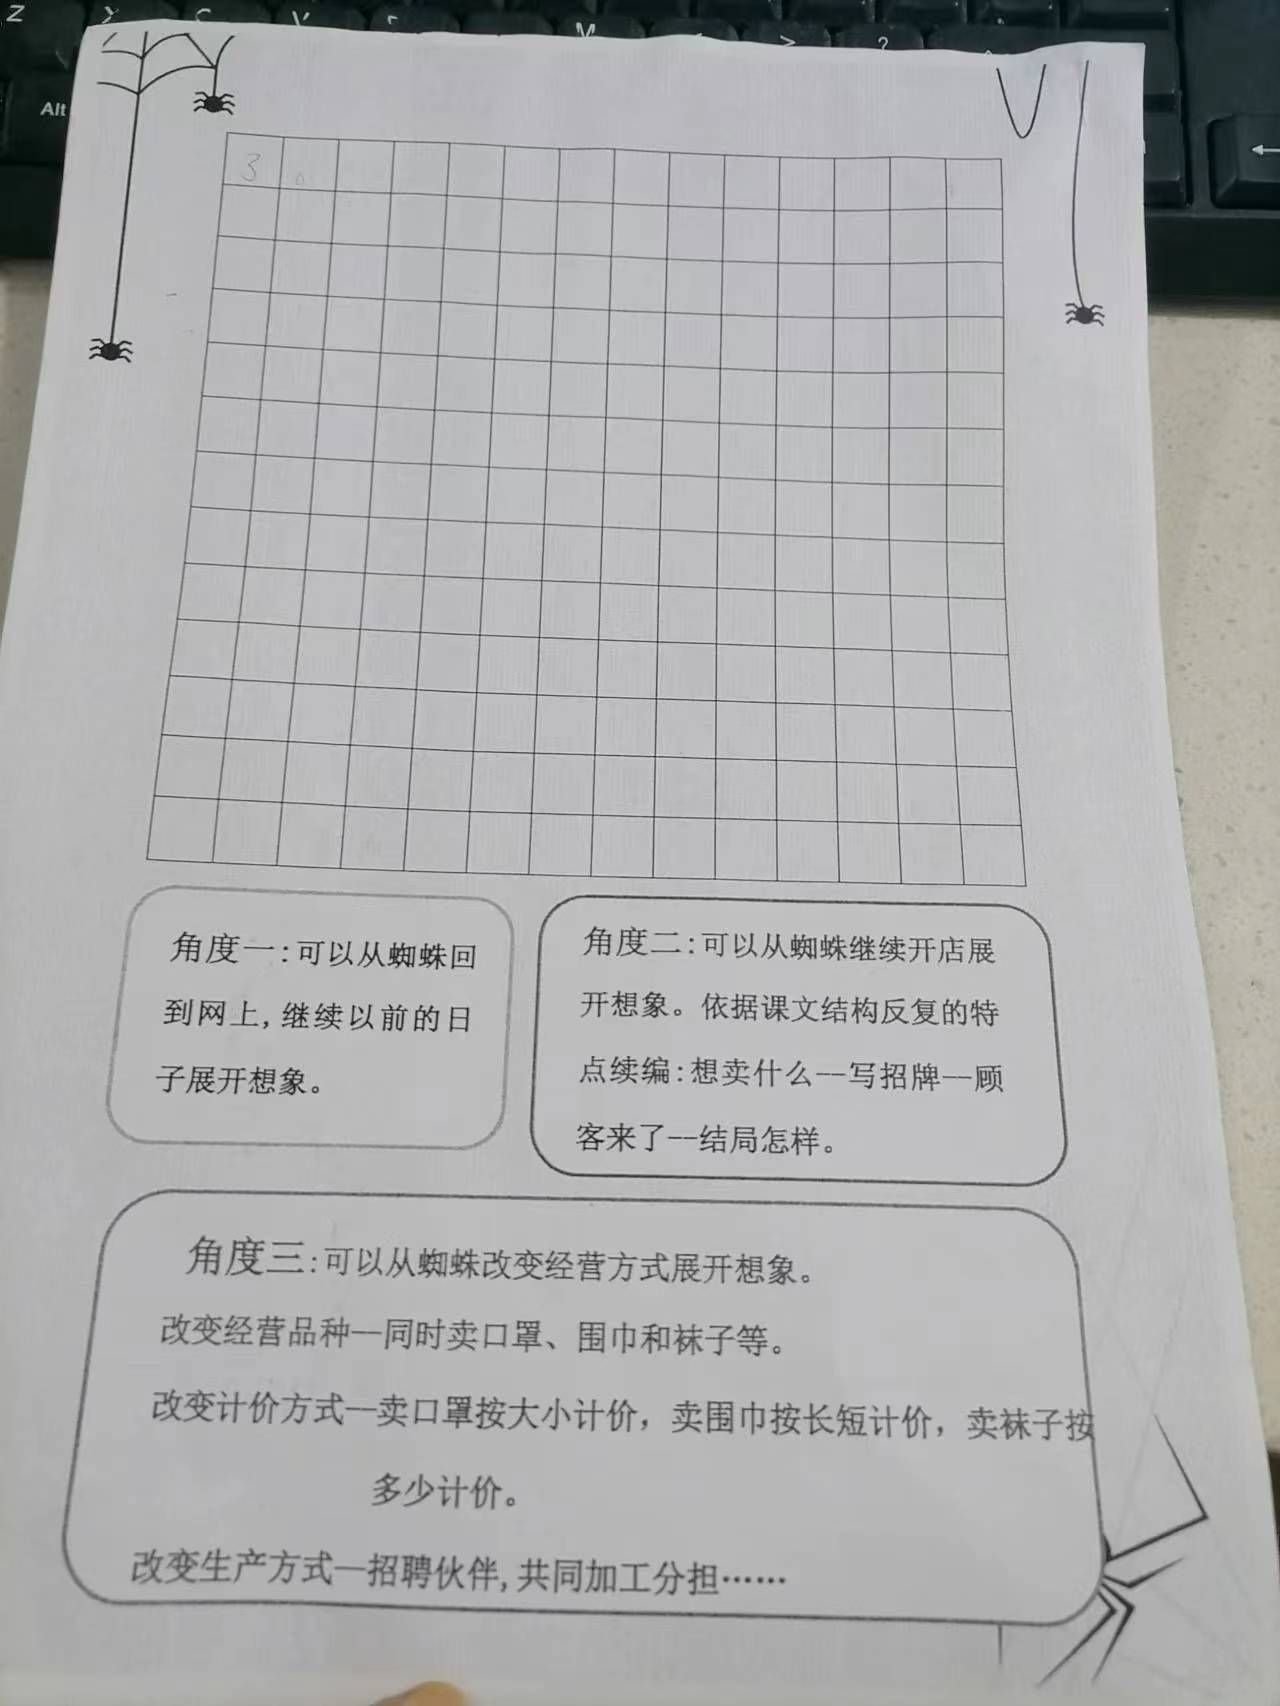 Z
Alt
M
>
?
3 。
角度一:可以从蜘蛛回
到网上,继续以前的日
子展开想象。
角度二:可以从蜘蛛继续开店展
开想象。依据课文结构反复的特
点续编:想卖什么--写招牌--顾
客来了--结局怎样。
角度三:可以从蜘蛛改变经营方式展开想象。
改变经营品种—同时卖口罩、围巾和袜子等。
改变计价方式—卖口罩按大小计价，卖围巾按长短计价，卖袜子按
多少计价。
改变生产方式—招聘伙伴,共同加工分担……